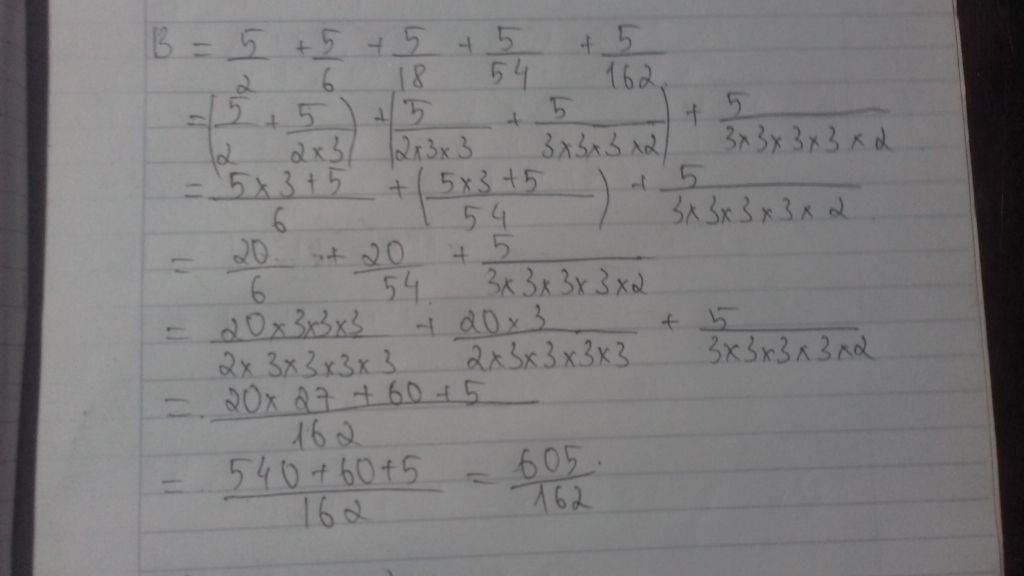 B = 5/2 + 5/6 + 5/18 + 5/54 + 5/162
= (5/2 + 5/(2×3)) + (5/(2×3×3) + 5/(3×3×3×2)) + 5/(3×3×3×3×2)
= (5×3+5)/6 + ((5×3+5)/54) + 5/(3×3×3×3×2)
= 20/6 + 20/54 + 5/(3×3×3×3×2)
= (20×3×3×3)/(2×3×3×3×3) + (20×3)/(2×3×3×3×3) + 5/(3×3×3×3×2)
= (20×27+60+5)/162
= (540+60+5)/162 = 605/162